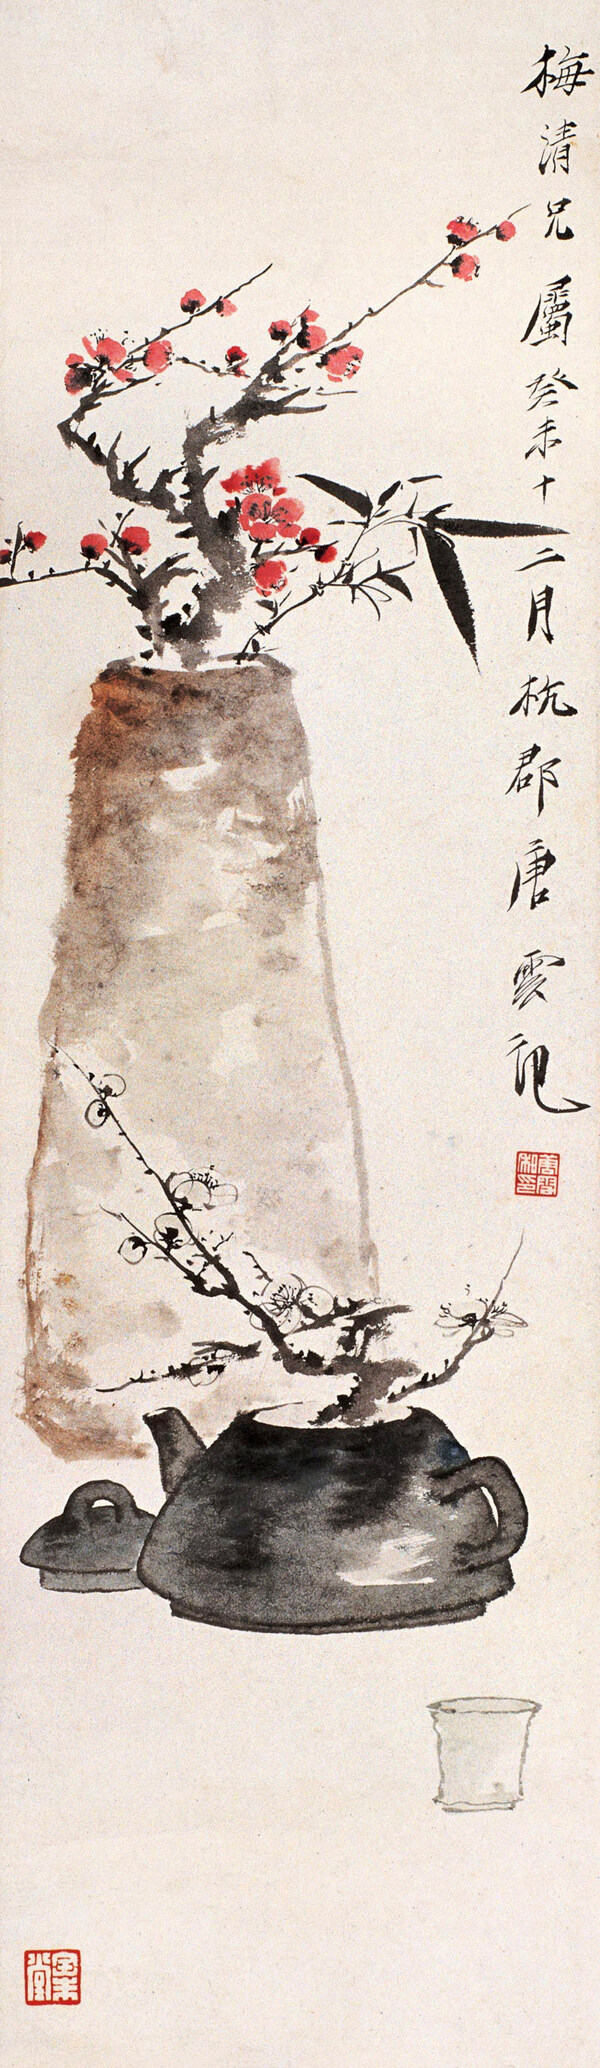 梅清兄屬癸未十二月杭郡唐雲記